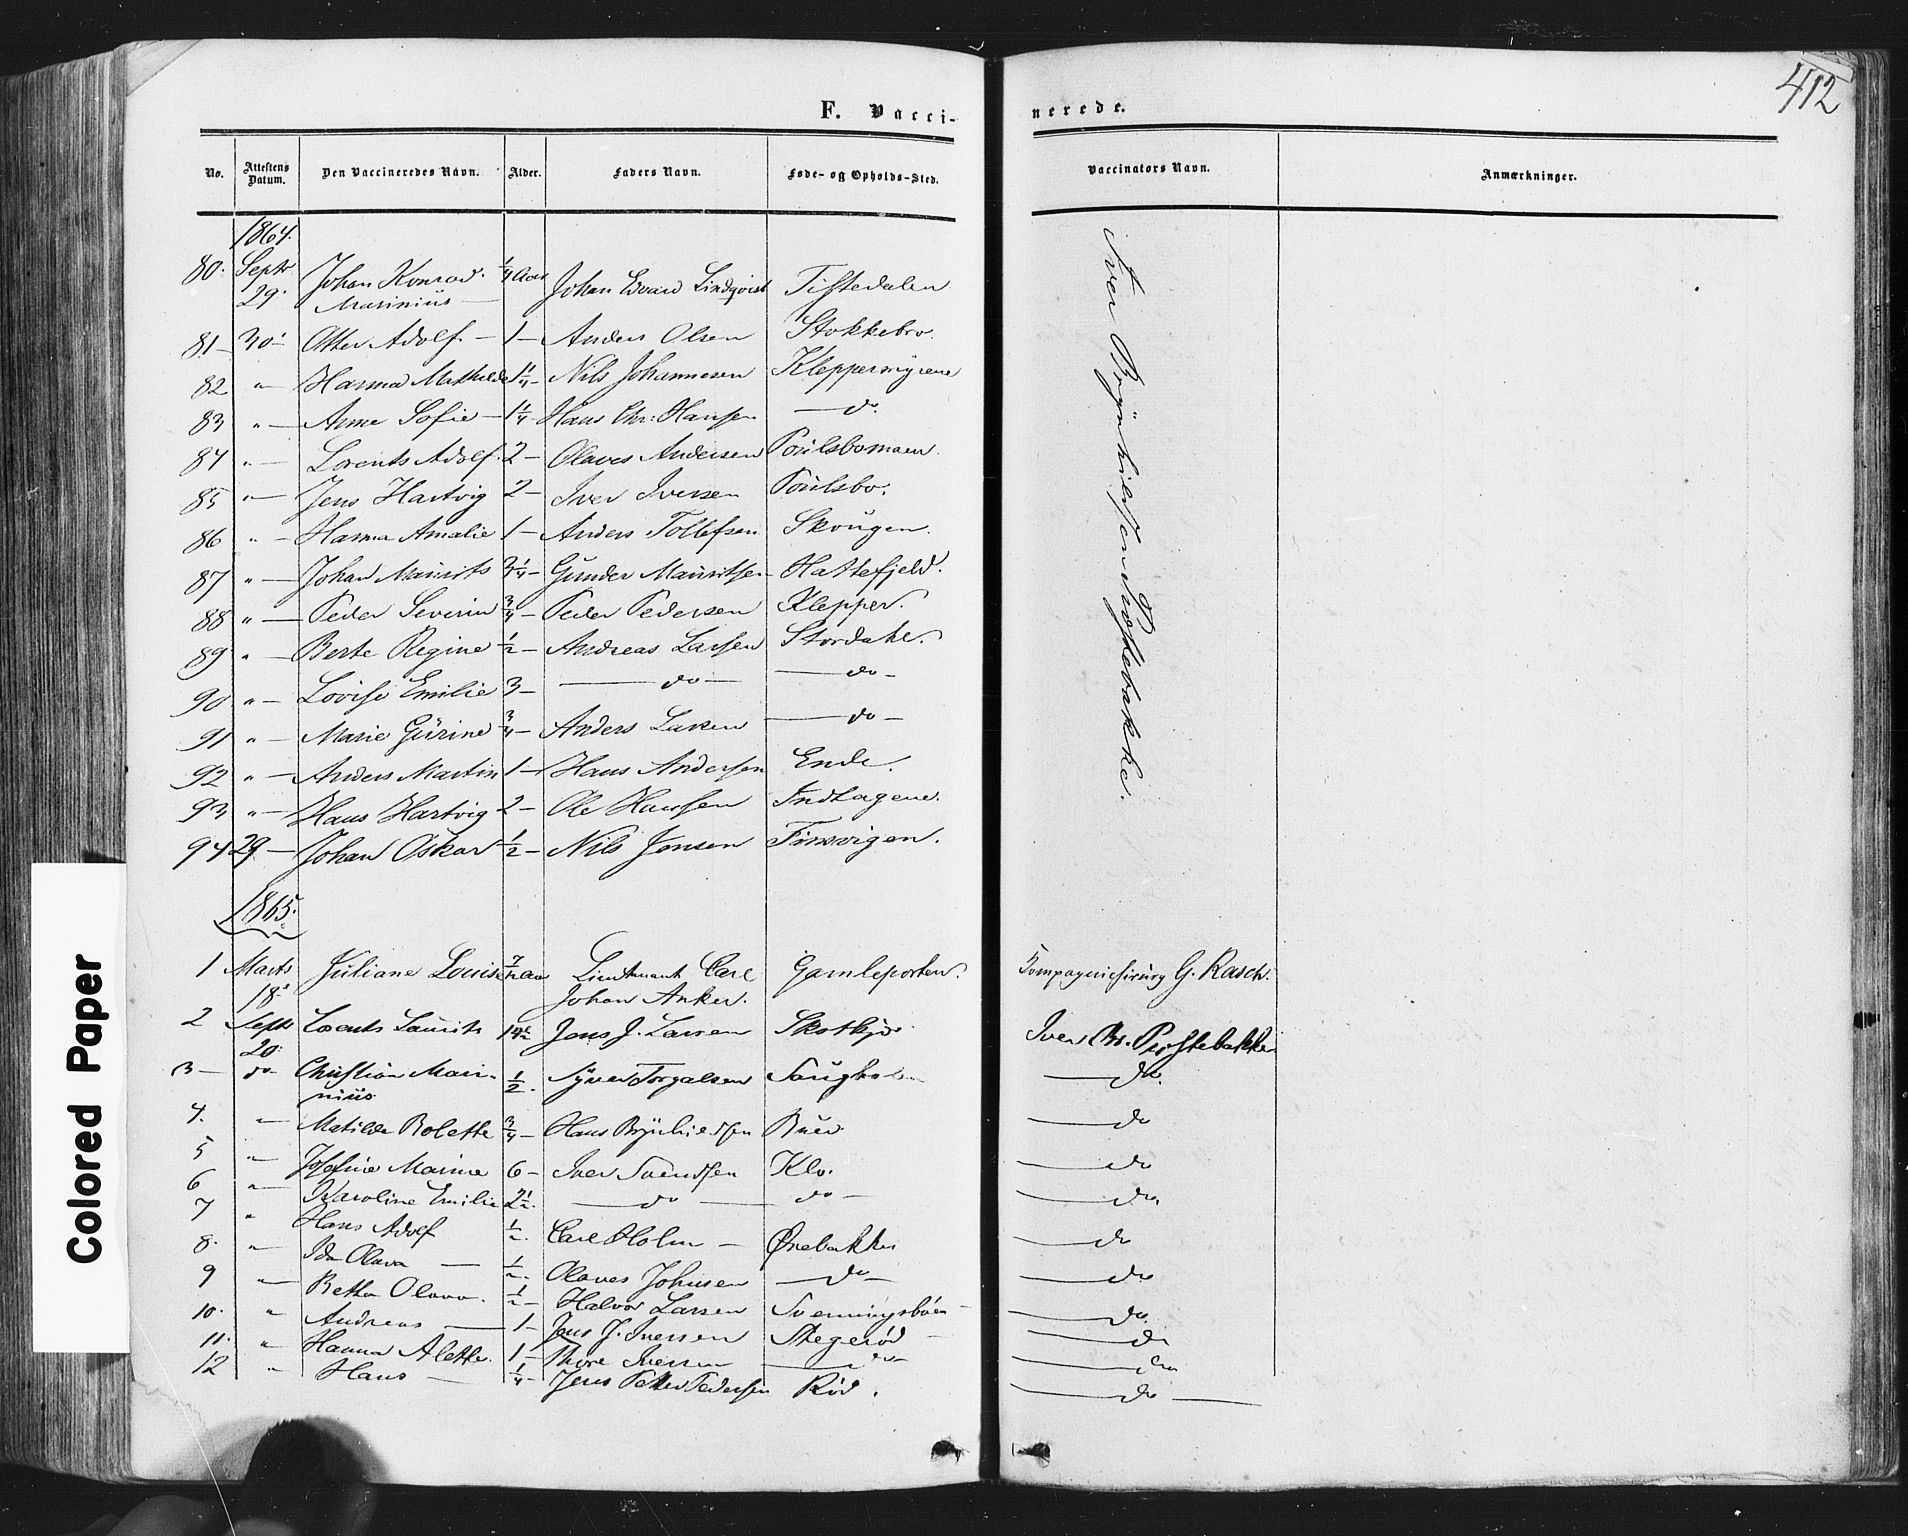 412
F. Vaccinerede.
No. Attestens Datum. Den Vaccineredes Navn. Alder. Faders Navn. Føde- og Opholds-Sted. Vaccinators Navn. Anmærkninger.
1864.
80. Septr 29. Johan Konrad Marinius 1/4 Aar Johan Edvard Lindqvist Tistedalen
81 30 Otter Adolf 1 Anders Olsen Stokkebro.
82 " Hanna Mathilde 1 1/4 Nils Johannesen Kleppermyrene
83 " Anne Sofie 1 1/4 Hans Chr: Hansen do.
84 " Lorents Adolf 2 Olaves Andersen Poulsbomoen.
85 " Jens Hartvig 2 Iver Iversen Poulsbo.
86 " Hanna Amalie 1 Anders Tollefsen Skougen.
87 " Johan Maurits 3 1/4 Gunder Mauritsen Hattefjeld.
88 " Peder Severin 3/4 Peder Pedersen Klepper.
89 " Berte Regine 1/2 Andreas Larsen Stordahl.
90 " Lovise Emilie 3 do do
91 " Marie Gurine 3/4 Anders Larsen do
92 " Anders Martin 1 Hans Andersen Ende.
93 " Hans Hartvig 2 Ole Hansen Indlagene.
94 29 Johan Oskar 1/2 Nils Jensen
Iver Brynhildsen Pirstebakke.
1865.
1 Marts 18. Juliane Louise Aar Lieutenant Carl Johan Anker. Gamleporten. Kompagniechirurg G. Rasch.
2 Septr 20. Lorents Laurits Jens J. Larsen Iver Br. Pirstebakke
3 do Christian Marinius 1/2 Syver Torgalsen do.
4. " Matilde Bolette 3/4 Hans Brynhildsen Buer do
5 " Josefine Marine 6 Iver Svendsen Klo. do
6 " Karoline Emilie 2 1/2 do do do
7 " Hans Adolf 1/2 Carl Holm Ørebakke do
8. " Ida Olava 1/2 Olaves Johnsen do do
9 " Betha Olava 1/2 Halvor Larsen Svenningsbøen do
10. " Andreas 1 Jens J. Iversen Stegerød do
11. " Hanna Alette. 1 Thore Iversen do do
12 " Hans 1/4 Jens Petter Pedersen Rød. do
Colored Paper